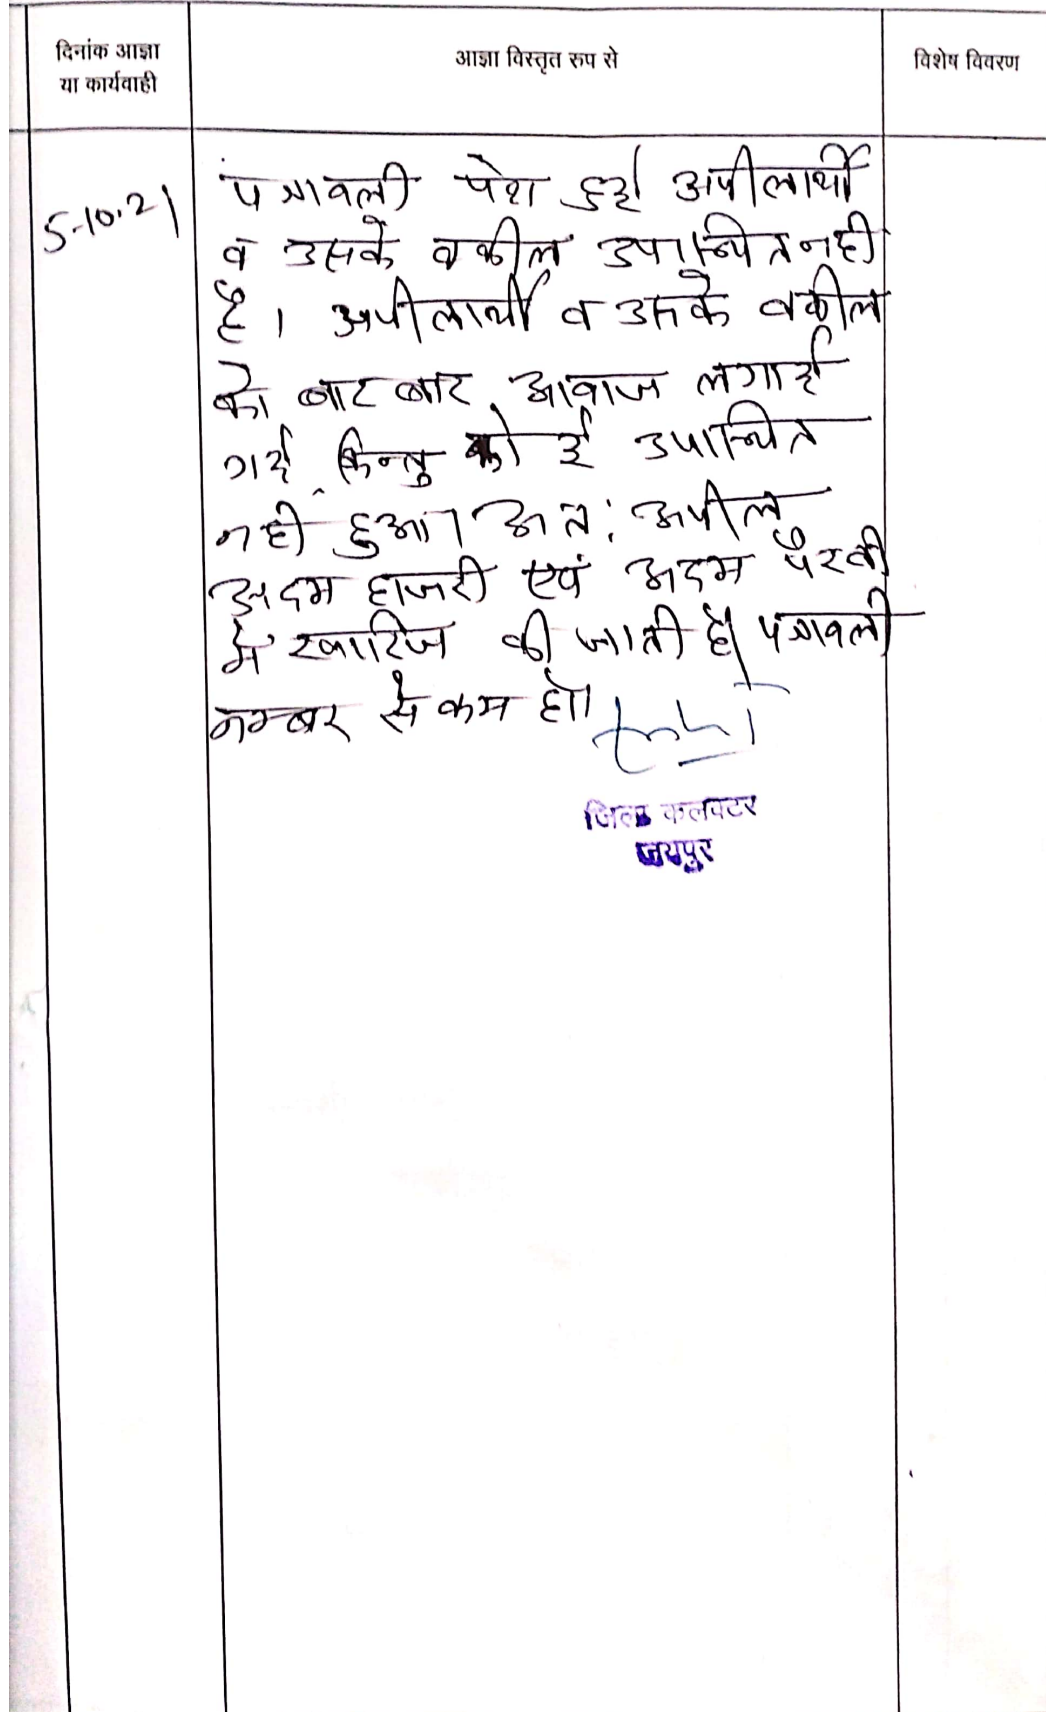 दिनांक आज्ञा
या कार्यवाही
आज्ञा विस्तृत रुप से
विशेष विवरण
5-10-21
पत्रावली पेश हुई अपीलार्थी
व उसके वकील उपस्थित नही
है। अपीलार्थी व उसके वकील
को बार बार आवाज लगाई
गई किन्तु कोई उपस्थित
नही हुआ। अत: अपील
अदम हाजरी एवं अदम पैरवी
मे खारिज की जाती है। पत्रावली
नम्बर से कम हो।
जिला कलक्टर
जयपुर